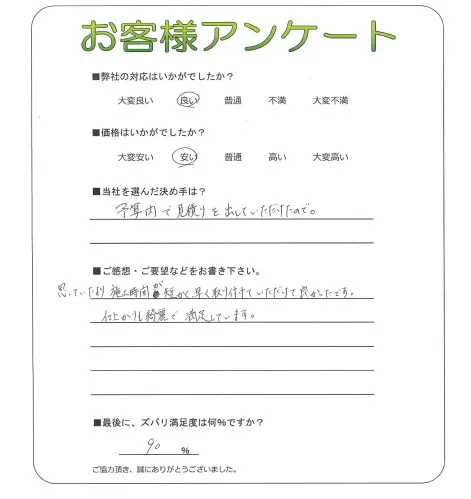 お客様アンケート
■弊社の対応はいかがでしたか？
大変良い 良い 普通 不満 大変不満
■価格はいかがでしたか？
大変安い 安い 普通 高い 大変高い
■当社を選んだ決め手は？
予算内で見積りを出していただけたので。
■ご感想・ご要望などをお書き下さい。
思っていたより施工時間が短かく、早く取り付けていただけて良かったです。
仕上がりも綺麗で満足しています。
■最後に、ズバリ満足度は何％ですか？
90 ％
ご協力頂き、誠にありがとうございました。